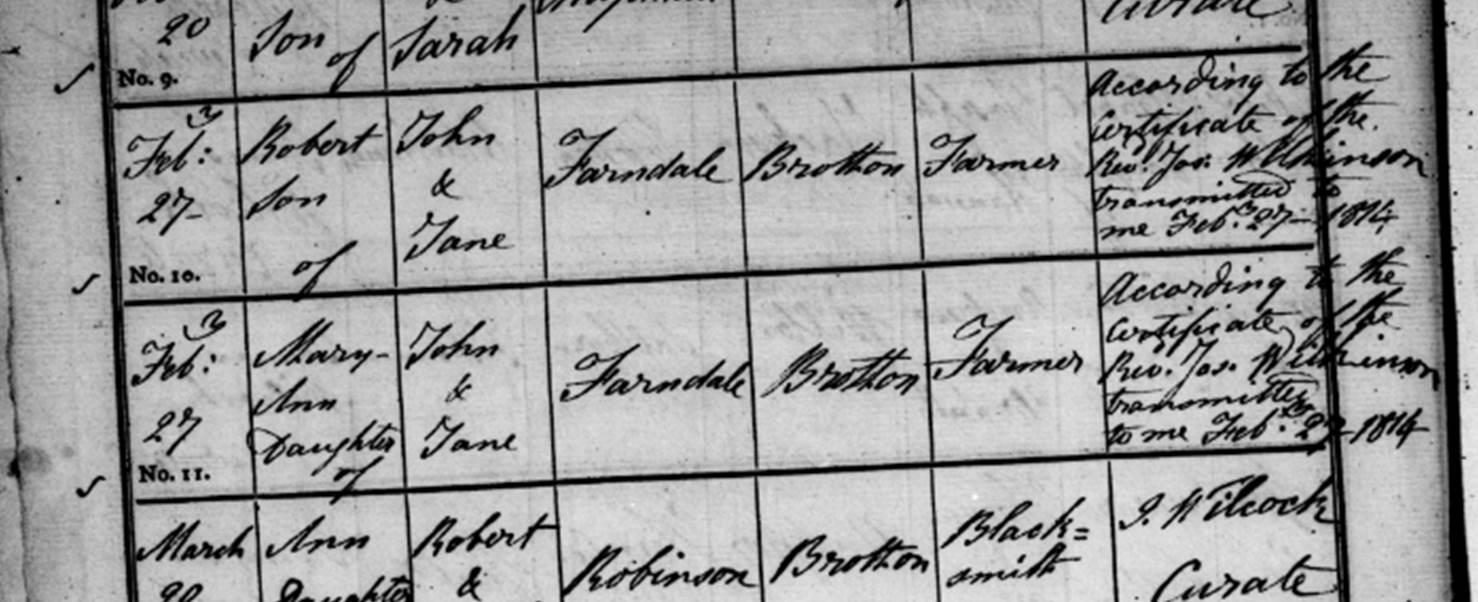 20 Son of Sarah Curate
No. 9.
Feb:ry 27- Robert Son of John & Jane Farndale Brotton Farmer According to the
Certificate of the
Revd. Jos. Wilkinson
transmitted to
me Feb.ry 27- 1814
No. 10.
Feb:ry 27 Mary-Ann Daughter of John & Jane Farndale Brotton Farmer According to the
Certificate of the
Rev. Jos. Wilkinson
transmitted
to me Feb.ry 27- 1814
No. 11.
March Ann Daughter Robert & Robinson Brotton Black=
smith J. Wilcock
Curate